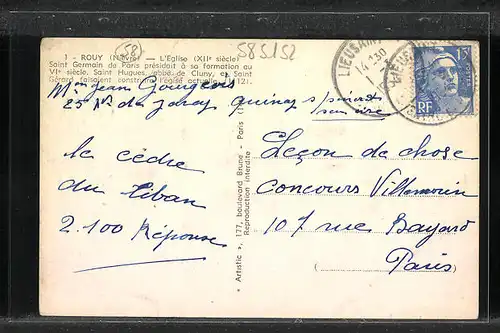 58
58S152
1 - ROUY (Nièvre) — L'Eglise (XIIe siècle)
Saint Germain de Paris présidait à sa formation au
VIe siècle. Saint Hugues, abbé de Cluny, et Saint
Gérard faisaient construire l'église actuelle 121.
Mon Jean Gourgeois
25 du quincy s/senart
LIEUSAINT
14 130
RF
15
le cèdre
du Liban
2.100 Réponse
« Artistic », 177, boulevard Brune - Paris
Reproduction interdite
Leçon de chose
Concours Villmorin
107 rue Bayard
Paris